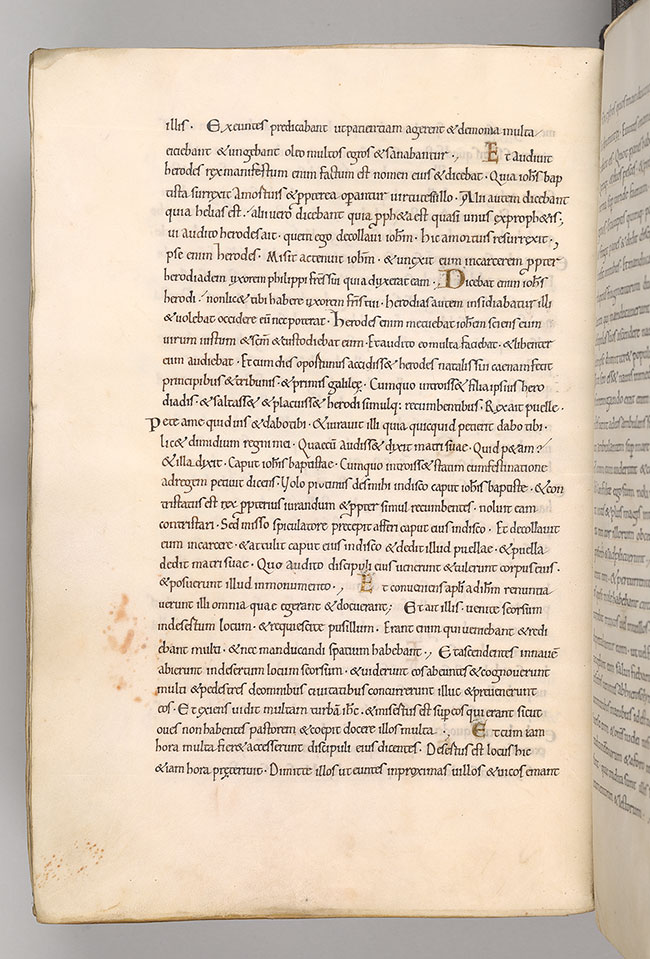 illis · Exeuntes predicabant utpaenitentiam agerent & demonia multa
eiciebant & ungebant oleo multos egros & sanabantur ., Et audiuit
herodes rex manifestum enim factum est nomen eius & dicebat · Quia ioh̅s bap
tista surrexit amortuis & ppterea opantur uirtutes illo · Alii autem dicebant
quia helias est · alii uero dicebant quia pph&a est quasi unus ex proph&is ;
ui audito herodes ait · quem ego decollaui ioh̅m · hic amortuis resurrexit ·
pse enim herodes · Misit actenuit ioh̅m · & uinxit eum incarcerem ppter
herodiadem uxorem philippi frīs sui quia duxerat eam · Dicebat enim ioh̅s
herodi · non lic& tibi habere uxorem frīs tui · herodias autem insidiabatur illi
& uolebat occidere eū nec poterat · herodes enim metuebat ioh̅em sciens eum
uirum iustum & sc̅m & custodiebat eum · Et audito eo multa faciebat · & libenter
eum audiebat · Et cum dies oportunus accidiss& herodes natalis sui caenam fecit
principibus & tribunis · & primis galileę · Cumquo introiss& filia ipsius hero
diadis · & saltass& & placuiss& herodi simulq; recumbentibus · Rex ait puelle ·
Pete ame quid uis & dabo tibi · & iurauit illi quia quicquid petierit dabo tibi ·
lic& dimidium regni mei · Quae cū audiss& dixit matri suae · Quid p&am ?
& illa dixit · Caput ioh̅is baptistae · Cumquo introiss& statim cum festinatione
ad regem petiuit dicens · Uolo protinus des mihi indisco caput ioh̅is baptiste · & con
tristatus est rex ppter ius iurandum & ppter simul recumbentes · noluit eam
contristari · Sed misso spiculatore precepit afferri caput eius indisco · Et decollauit
eum incarcere · & attulit caput eius indisco & dedit illud puellae · & puella
dedit matri suae · Quo audito discipuli eius uenerunt & tulerunt corpus eius ·
& posuerunt illud inmonumento ., Et conuenientes apl̅i ad ih̅m renuntia
uerunt illi omnia quae egerant & docuerant ; Et ait illis · uenite seorsum
indesertum locum · & requiescite pusillum · Erant enim qui ueniebant & redi
ebant multi · & nec manducandi spatium habebant ., Et ascendentes innauē
abierunt indesertum locum seorsum · & uiderunt eos abeuntes & cognouerunt
multi & pedestres deomnibus ciuitatibus concurrerunt illuc & preuenerunt
eos · Et exiens uidit multam turbā ih̅c · & misertus est sup eos qui erant sicut
oues non habentes pastorem & coepit docere illos multa ., Et cum iam
hora multa fier& accesserunt discipuli eius dicentes · Desertus est locus hic
& iam hora preteriuit · Dimitte illos ut euntes inproximas uillos & uicos emant